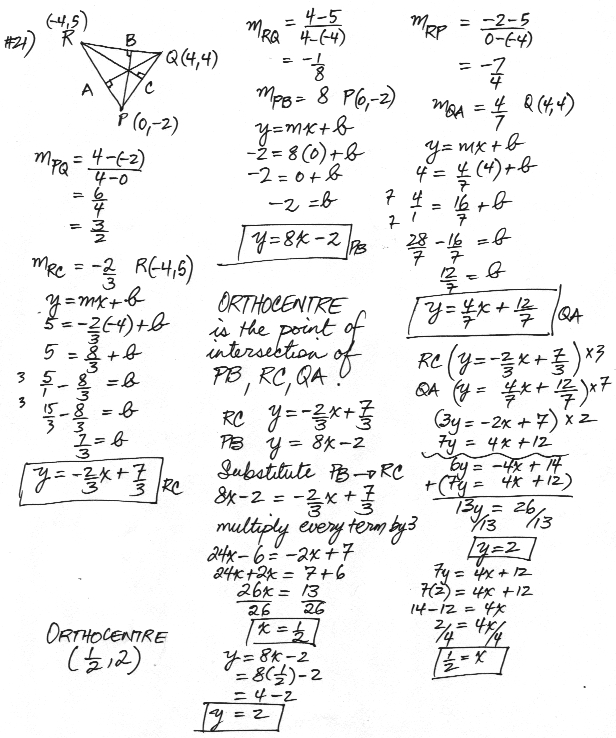 #21)
(-4,5)
R
B
Q(4,4)
A
C
P(0,-2)
m_PQ = 4-(-2)/4-0
= 6/4
= 3/2
m_RC = -2/3 R(-4,5)
y=mx+b
5=-2/3(-4)+b
5 = 8/3 + b
3 5/1 - 8/3 = b
3
15/3 - 8/3 = b
7/3 = b
y=-2/3x+7/3 RC
ORTHOCENTRE
(1/2, 2)
m_RQ = 4-5/4-(-4)
= -1/8
m_PB = 8 P(0,-2)
y=mx+b
-2=8(0)+b
-2=0+b
-2=b
y=8x-2 PB
ORTHOCENTRE
is the point of
intersection of
PB, RC, QA.
RC y=-2/3x+7/3
PB y = 8x-2
Substitute PB→RC
8x-2 = -2/3x + 7/3
multiply every term by 3
24x-6=-2x+7
24x+2x = 7+6
26x/26 = 13/26
x = 1/2
y=8x-2
=8(1/2)-2
= 4-2
y = 2
m_RP = -2-5/0-(-4)
= -7/4
m_QA = 4/7 Q(4,4)
y=mx+b
4 = 4/7(4)+b
7 4/1 = 16/7 + b
7
28/7 - 16/7 = b
12/7 = b
y=4/7x+12/7 QA
RC (y=-2/3x+7/3)×3
QA (y= 4/7x+12/7)×7
(3y=-2x+7)×2
7y = 4x+12
6y = -4x+14
+(7y= 4x+12)
13y/13 = 26/13
y=2
7y = 4x+12
7(2) = 4x+12
14-12 = 4x
2/4 = 4x/4
1/2 = x